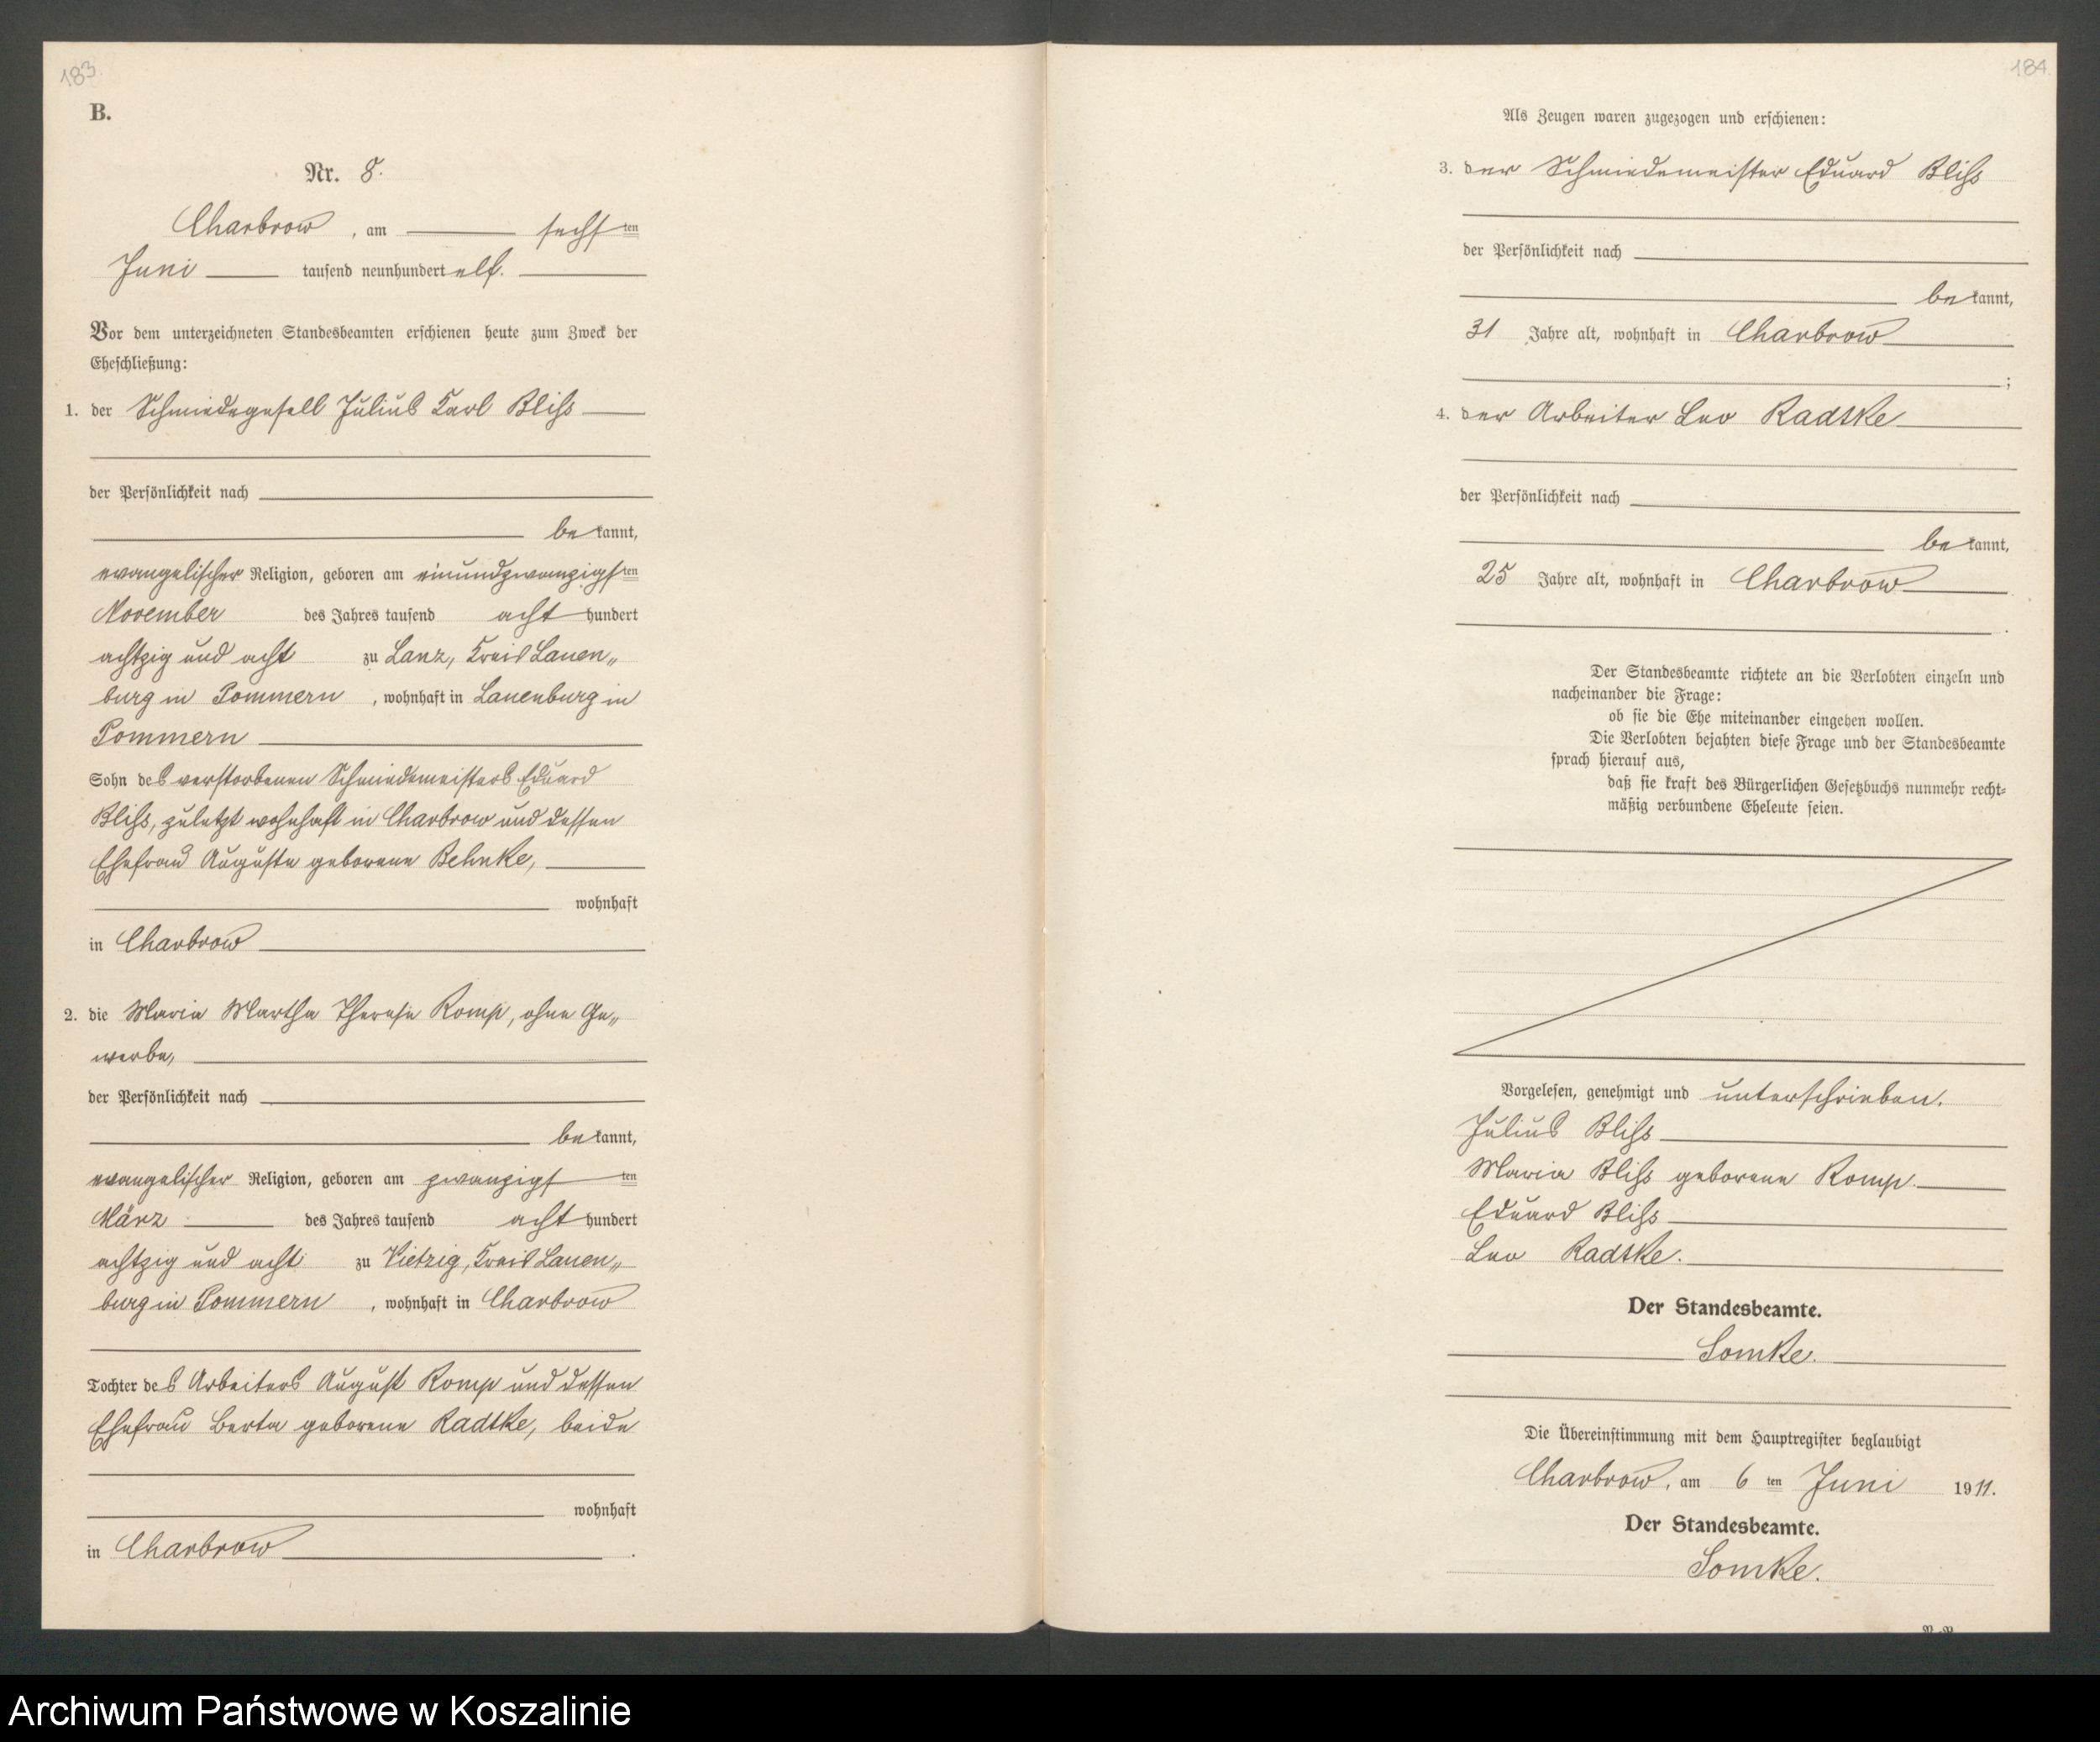 183.
B.
Nr. 8.
Charbrow, am sechsten
Juni tausend neunhundert elf.
Vor dem unterzeichneten Standesbeamten erschienen heute zum Zweck der
Eheschließung:
1. der Schmiedegesell Julius Karl Bliß
der Persönlichkeit nach
bekannt,
evangelischer Religion, geboren am einundzwanzigsten
November des Jahres tausend acht hundert
achtzig und acht zu Lanz, Kreis Lauen„
burg in Pommern, wohnhaft in Lauenburg in
Pommern
Sohn des verstorbenen Schmiedemeisters Eduard
Bliß, zuletzt wohnhaft in Charbrow und dessen
Ehefrau Auguste geborene Behnke,
wohnhaft
in Charbrow
2. die Maria Martha Therese Romp, ohne Ge„
werbe,
der Persönlichkeit nach
bekannt,
evangelischer Religion, geboren am zwanzigsten
März des Jahres tausend acht hundert
achtzig und acht zu Vietzig, Kreis Lauen„
burg in Pommern, wohnhaft in Charbrow
Tochter des Arbeiters August Romp und dessen
Ehefrau Berta geborene Radtke, beide
wohnhaft
in Charbrow.
184.
Als Zeugen waren zugezogen und erschienen:
3. der Schmiedemeister Eduard Bliß
der Persönlichkeit nach
bekannt,
31 Jahre alt, wohnhaft in Charbrow
;
4. der Arbeiter Leo Radtke
der Persönlichkeit nach
bekannt,
25 Jahre alt, wohnhaft in Charbrow
.
Der Standesbeamte richtete an die Verlobten einzeln und
nacheinander die Frage:
ob sie die Ehe miteinander eingehen wollen.
Die Verlobten bejahten diese Frage und der Standesbeamte
sprach hierauf aus,
daß sie kraft des Bürgerlichen Gesetzbuchs nunmehr recht=
mäßig verbundene Eheleute seien.
Vorgelesen, genehmigt und unterschrieben.
Julius Bliß
Maria Bliß geborene Romp.
Eduard Bliß
Leo Radtke.
Der Standesbeamte.
Somke.
Die Übereinstimmung mit dem Hauptregister beglaubigt
Charbrow, am 6 ten Juni 1911.
Der Standesbeamte.
Somke.
Archiwum Państwowe w Koszalinie